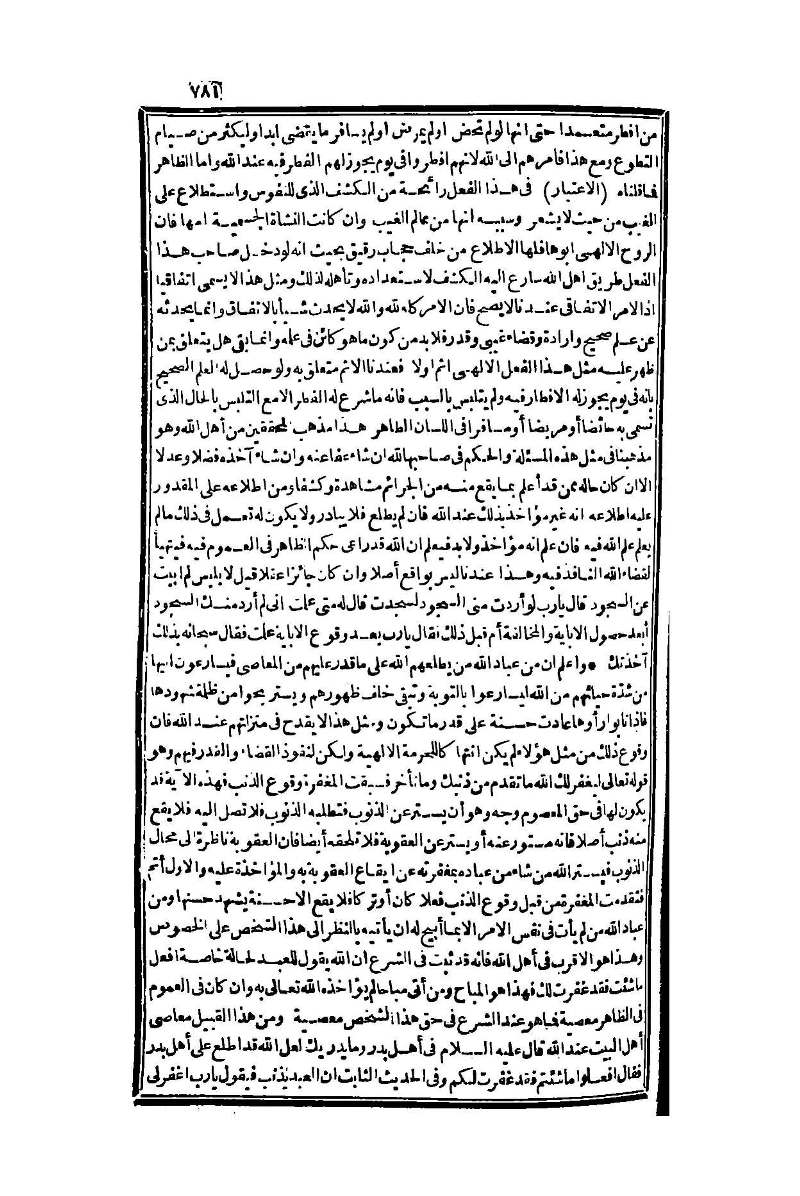 ٧٨٦
من افطر متعمدا حتى انها لو لم تحض او لم يمرض او لم يسافر ما يقضى ابدا وليكثر من صيام
التطوع ومع هذا فأمرهم الى الله لانهم افطروا فى يوم يجوز لهم الفطر فيه عند الله واما الظاهر
فما قلناه (الاعتبار) فى هذا الفعل رائحة من الكشف الذى للنفوس واستطلاع على
الغيب من حيث لا يشعر وسببه انها من عالم الغيب وان كانت النشأة الجسمية امها فان
الروح الالهى ابوها فلها الاطلاع من خلف حجاب رقيق بحيث انه لو دخل صاحب هذا
الفعل طريق اهل الله سارع اليه الكشف لاستعداده وتأهله لذلك ومثل هذا لا يسمى اتفاقيا
اذ الامر الاتفاقى عندنا لا يصح فان الامر كله لله والله لا يحدث شيأ بالاتفاق وانما يحدثه
عن علم صحيح وارادة وقضاء غيبى وقدر فلا بد من كون ما هو كائن فى علمه وانما بقى هل يتعلق بمن
ظهر عليه مثل هذا الفعل الالهى اثم اولا فعندنا الاثم متعلق به ولو حصل له العلم الصحيح
بانه فى يوم يجوز له الافطار فيه ولم يتلبس بالسبب فانه ما شرع له الفطر الا مع التلبس بالحال الذى
تسمى به حائضا أو مريضا أو مسافرا فى اللسان الظاهر هذا مذهب المحققين من أهل الله وهو
مذهبنا فى مثل هذه المسئلة والحكم فى صاحبها لله ان شاء عفا عنه وان شاء آخذه فضلا وعدلا
الا ان كان حاله ممن قد أعلم بما يقع منه من الجرائم مشاهدة وكشفا ومن اطلاعه على المقدور
عليه اطلاعه انه غير مؤاخذ بذلك عند الله فان لم يطلع فلا يبادر ولا يكون له تعمل فى ذلك ما لم
يعلم علم الله فيه فان علم انه مؤاخذ ولا بد فيعلم ان الله قد راعى حكم الظاهر فى العموم فيه فيتهيأ
لقضاء الله النافذ فيه وهذا عندنا ليس بواقع أصلا وان كان جائزا عقلا قيل لابليس لم ابيت
عن السجود قال يارب لو أردت منى السجود لسجدت قال له متى علمت انى لم أرد منك السجود
أبعد حصول الاباية والمخالفة أم قبل ذلك فقال يارب بعد وقوع الاباية علمت فقال سبحانه بذلك
آخذتك * واعلم ان من عباد الله من يطلعهم الله على ما قدر عليهم من المعاصى فيسارعون اليها
من شدة حيائهم من الله ليسارعوا بالتوبة وتبقى خلف ظهورهم ويستريحوا من ظلمة شهودها
فاذا تابوا رأوها عادت حسنة على قدر ما تكون ومثل هذا لا يقدح فى منزلتهم عند الله فان
وقوع ذلك من مثل هؤلاء لم يكن انتهاكا للحرمة الالهية ولكن لنفوذ القضاء والقدر فيهم وهو
قوله تعالى ليغفر لك الله ما تقدم من ذنبك وما تأخر فسبقت المغفرة وقوع الذنب فهذه الآية قد
يكون لها فى حق المعصوم وجه وهو أن يستر عن الذنوب فتطلبه الذنوب فلا تصل اليه فلا يقع
منه ذنب أصلا فانه مستور عنه أو يستر عن العقوبة فلا تلحقه أيضا فان العقوبة ناظرة الى محال
الذنوب فيستر الله من شاء من عباده بمغفرته عن ايقاع العقوبة به والمؤاخذة عليه والاول أتم
فتقدمت المغفرة من قبل وقوع الذنب فعلا كان أو تركا فلا يقع الا حسنة يشهد حسنها ومن
عباد الله من لم يأت فى نفس الامر الا بما أبيح له ان يأتيه بالنظر الى هذا الشخص على الخصوص
وهذا هو الاقرب فى أهل الله فانه قد ثبت فى الشرع ان الله يقول للعبد لحالة خاصة افعل
ما شئت فقد غفرت لك فهذا هو المباح ومن أتى مباحا لم يؤاخذه الله تعالى به وان كان فى العموم
فى الظاهر معصية فما هو عند الشرع فى حق هذا الشخص معصية ومن هذا القبيل معاصى
أهل البيت عند الله قال عليه السلام فى أهل بدر وما يدريك لعل الله قد اطلع على أهل بدر
فقال افعلوا ما شئتم فقد غفرت لكم وفى الحديث الثابت ان العبد يذنب فيقول يارب اغفر لى